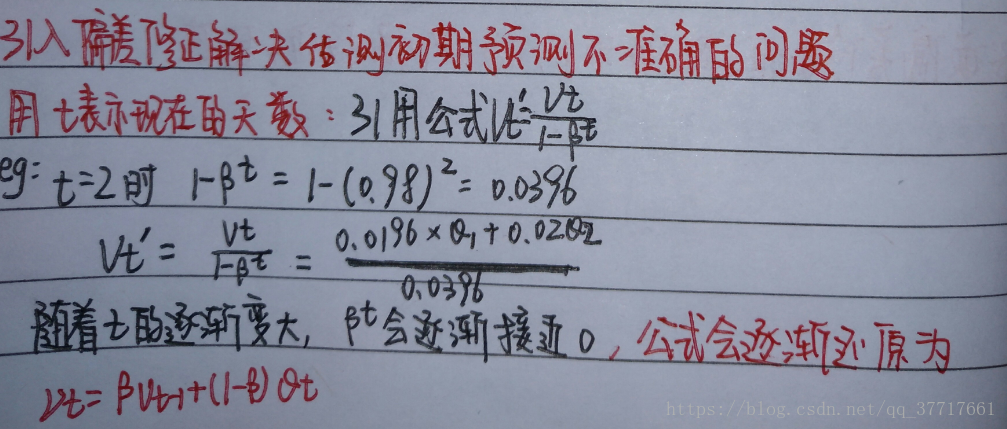 引入偏差修正解决估测初期预测不准确的问题
用t表示现在的天数:引用公式Vt'=Vt/(1-β^t)
eg: t=2时 1-β^t = 1-(0.98)^2 = 0.0396
Vt' = Vt/(1-β^t) = (0.0196×θ1+0.02θ2)/0.0396
随着t的逐渐变大, β^t会逐渐接近0,公式会逐渐还原为
Vt=βVt-1+(1-β)θt
https://blog.csdn.net/qq_37717661